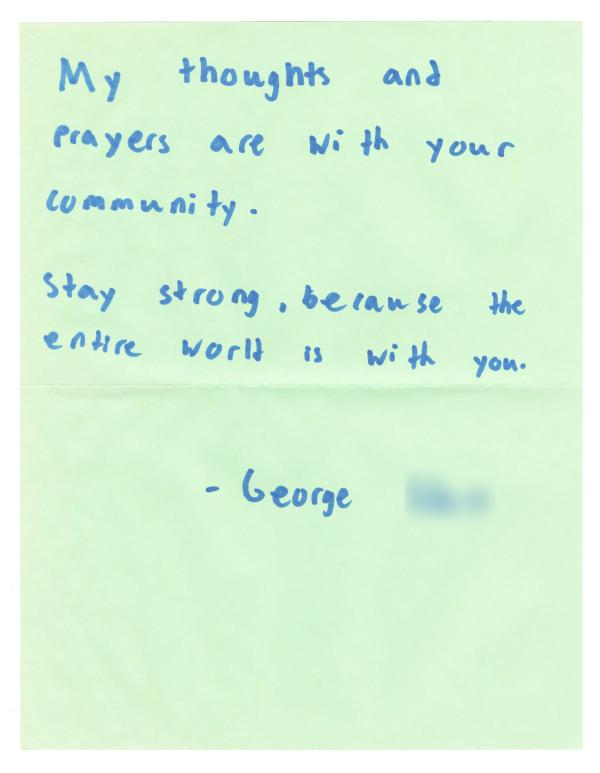 My thoughts and
prayers are with your
community.
Stay strong, because the
entire world is with you.
- George